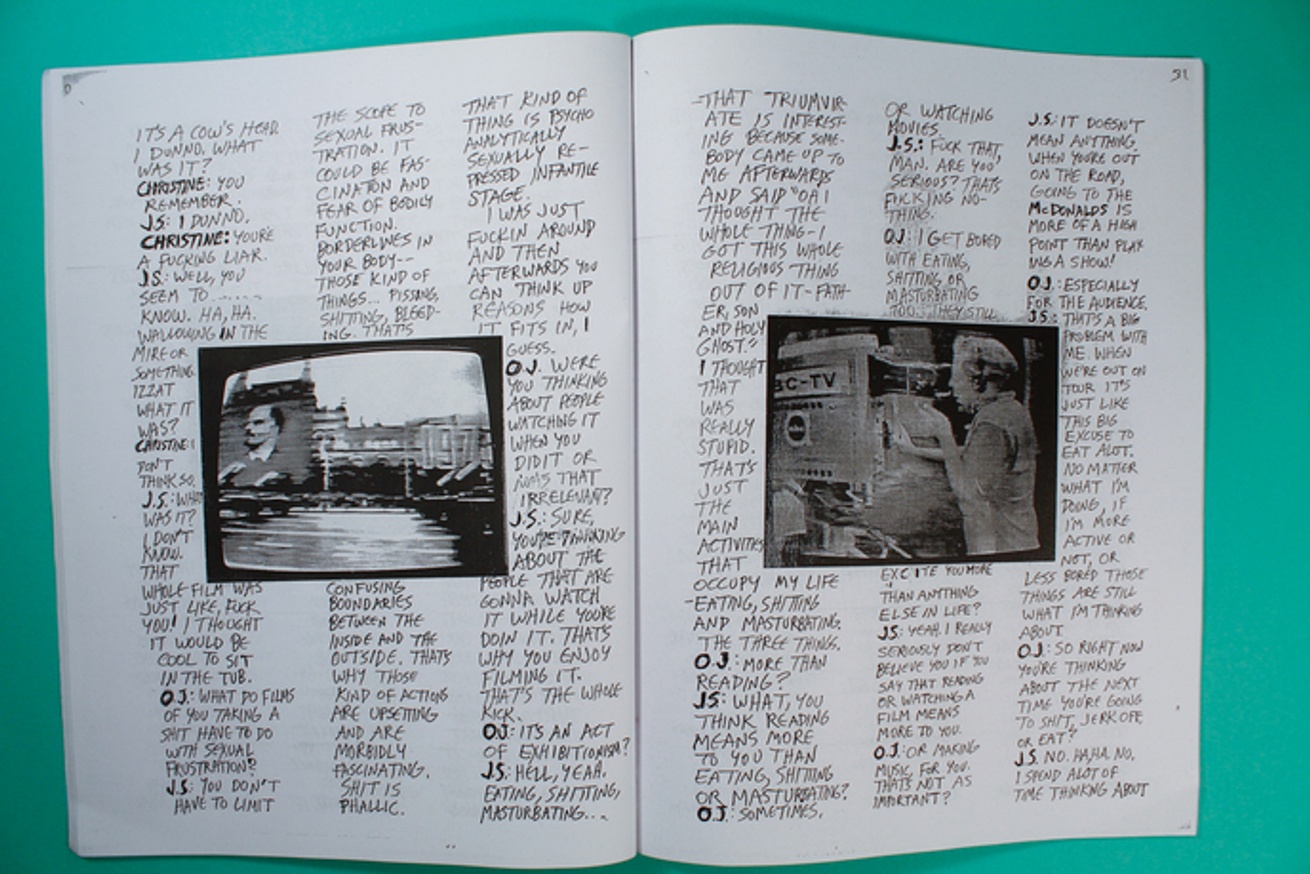 IT'S A COW'S HEAD.
I DUNNO. WHAT
WAS IT?
CHRISTINE: YOU
REMEMBER.
J.S: I DUNNO.
CHRISTINE: YOU'RE
A FUCKING LIAR.
J.S.: WELL, YOU
SEEM TO.......
KNOW. HA, HA.
WALLOWING IN THE
MIRE OR
SOMETHING.
IZZAT
WHAT IT
WAS?
CHRISTINE: I
DON'T
THINK SO.
J.S.: WHAT
WAS IT?
I DON'T
KNOW.
THAT
WHOLE FILM WAS
JUST LIKE, FUCK
YOU! I THOUGHT
IT WOULD BE
COOL TO SIT
IN THE TUB.
O.J.: WHAT DO FILMS
OF YOU TAKING A
SHIT HAVE TO DO
WITH SEXUAL
FRUSTRATION?
J.S.: YOU DON'T
HAVE TO LIMIT
THE SCOPE TO
SEXUAL FRUS-
TRATION. IT
COULD BE FAS-
CINATION AND
FEAR OF BODILY
FUNCTION.
BORDERLINES IN
YOUR BODY--
THOSE KIND OF
THINGS... PISSING,
SHITTING, BLEED-
ING. THAT'S
CONFUSING
BOUNDARIES
BETWEEN THE
INSIDE AND THE
OUTSIDE. THATS
WHY THOSE
KIND OF ACTIONS
ARE UPSETTING
AND ARE
MORBIDLY
FASCINATING.
SHIT IS
PHALLIC.
THAT KIND OF
THING IS PSYCHO
ANALYTICALLY
SEXUALLY RE-
PRESSED INFANTILE
STAGE.
I WAS JUST
FUCKIN AROUND
AND THEN
AFTERWARDS YOU
CAN THINK UP
REASONS HOW
IT FITS IN, I
GUESS.
O.J. WERE
YOU THINKING
ABOUT PEOPLE
WATCHING IT
WHEN YOU
DID IT OR
WAS THAT
IRRELEVANT?
J.S.: SURE,
YOU'RE THINKING
ABOUT THE
PEOPLE THAT ARE
GONNA WATCH
IT WHILE YOU'RE
DOIN IT. THAT'S
WHY YOU ENJOY
FILMING IT.
THAT'S THE WHOLE
KICK.
O.J: IT'S AN ACT
OF EXHIBITIONISM?
J.S: HELL, YEAH.
EATING, SHITTING,
MASTURBATING....
51
-THAT TRIUMVIR-
ATE IS INTEREST-
ING BECAUSE SOME-
BODY CAME UP TO
ME AFTERWARDS
AND SAID "OH I
THOUGHT THE
WHOLE THING-I
GOT THIS WHOLE
RELIGIOUS THING
OUT OF IT-FATH-
ER, SON
AND HOLY
GHOST."
I THOUGHT
THAT
WAS
REALLY
STUPID.
THAT'S
JUST
THE
MAIN
ACTIVITIES
THAT
OCCUPY MY LIFE
-EATING, SHITTING
AND MASTURBATING.
THE THREE THINGS.
O.J.: MORE THAN
READING?
JS: WHAT, YOU
THINK READING
MEANS MORE
TO YOU THAN
EATING, SHITTING
OR MASTURBATING?
O.J.: SOMETIMES.
OR WATCHING
MOVIES.
J.S.: FUCK THAT,
MAN. ARE YOU
SERIOUS? THATS
FUCKING NO-
THING.
OJ: I GET BORED
WITH EATING,
SHITTING OR
MASTURBATING
TOO. THEY STILL
BC-TV
EXCITE YOU MORE
THAN ANYTHING
ELSE IN LIFE?
JS: YEAH. I REALLY
SERIOUSLY DON'T
BELIEVE YOU IF YOU
SAY THAT READING
OR WATCHING A
FILM MEANS
MORE TO YOU.
O.J.: OR MAKING
MUSIC, FOR YOU.
THATS NOT AS
IMPORTANT?
J.S.: IT DOESN'T
MEAN ANYTHING.
WHEN YOU'RE OUT
ON THE ROAD,
GOING TO THE
McDONALDS IS
MORE OF A HIGH
POINT THAN PLAY-
ING A SHOW!
O.J.: ESPECIALLY
FOR THE AUDIENCE.
J.S.: THAT'S A BIG
PROBLEM WITH
ME. WHEN
WE'RE OUT ON
TOUR IT'S
JUST LIKE
THIS BIG
EXCUSE TO
EAT ALOT.
NO MATTER
WHAT I'M
DOING, IF
I'M MORE
ACTIVE OR
NOT, OR
LESS BORED THOSE
THINGS ARE STILL
WHAT I'M THINKING
ABOUT.
O.J.: SO RIGHT NOW
YOU'RE THINKING
ABOUT THE NEXT
TIME YOU'RE GOING
TO SHIT, JERK OFF
OR EAT?
J.S. NO. HA,HA. NO.
I SPEND ALOT OF
TIME THINKING ABOUT